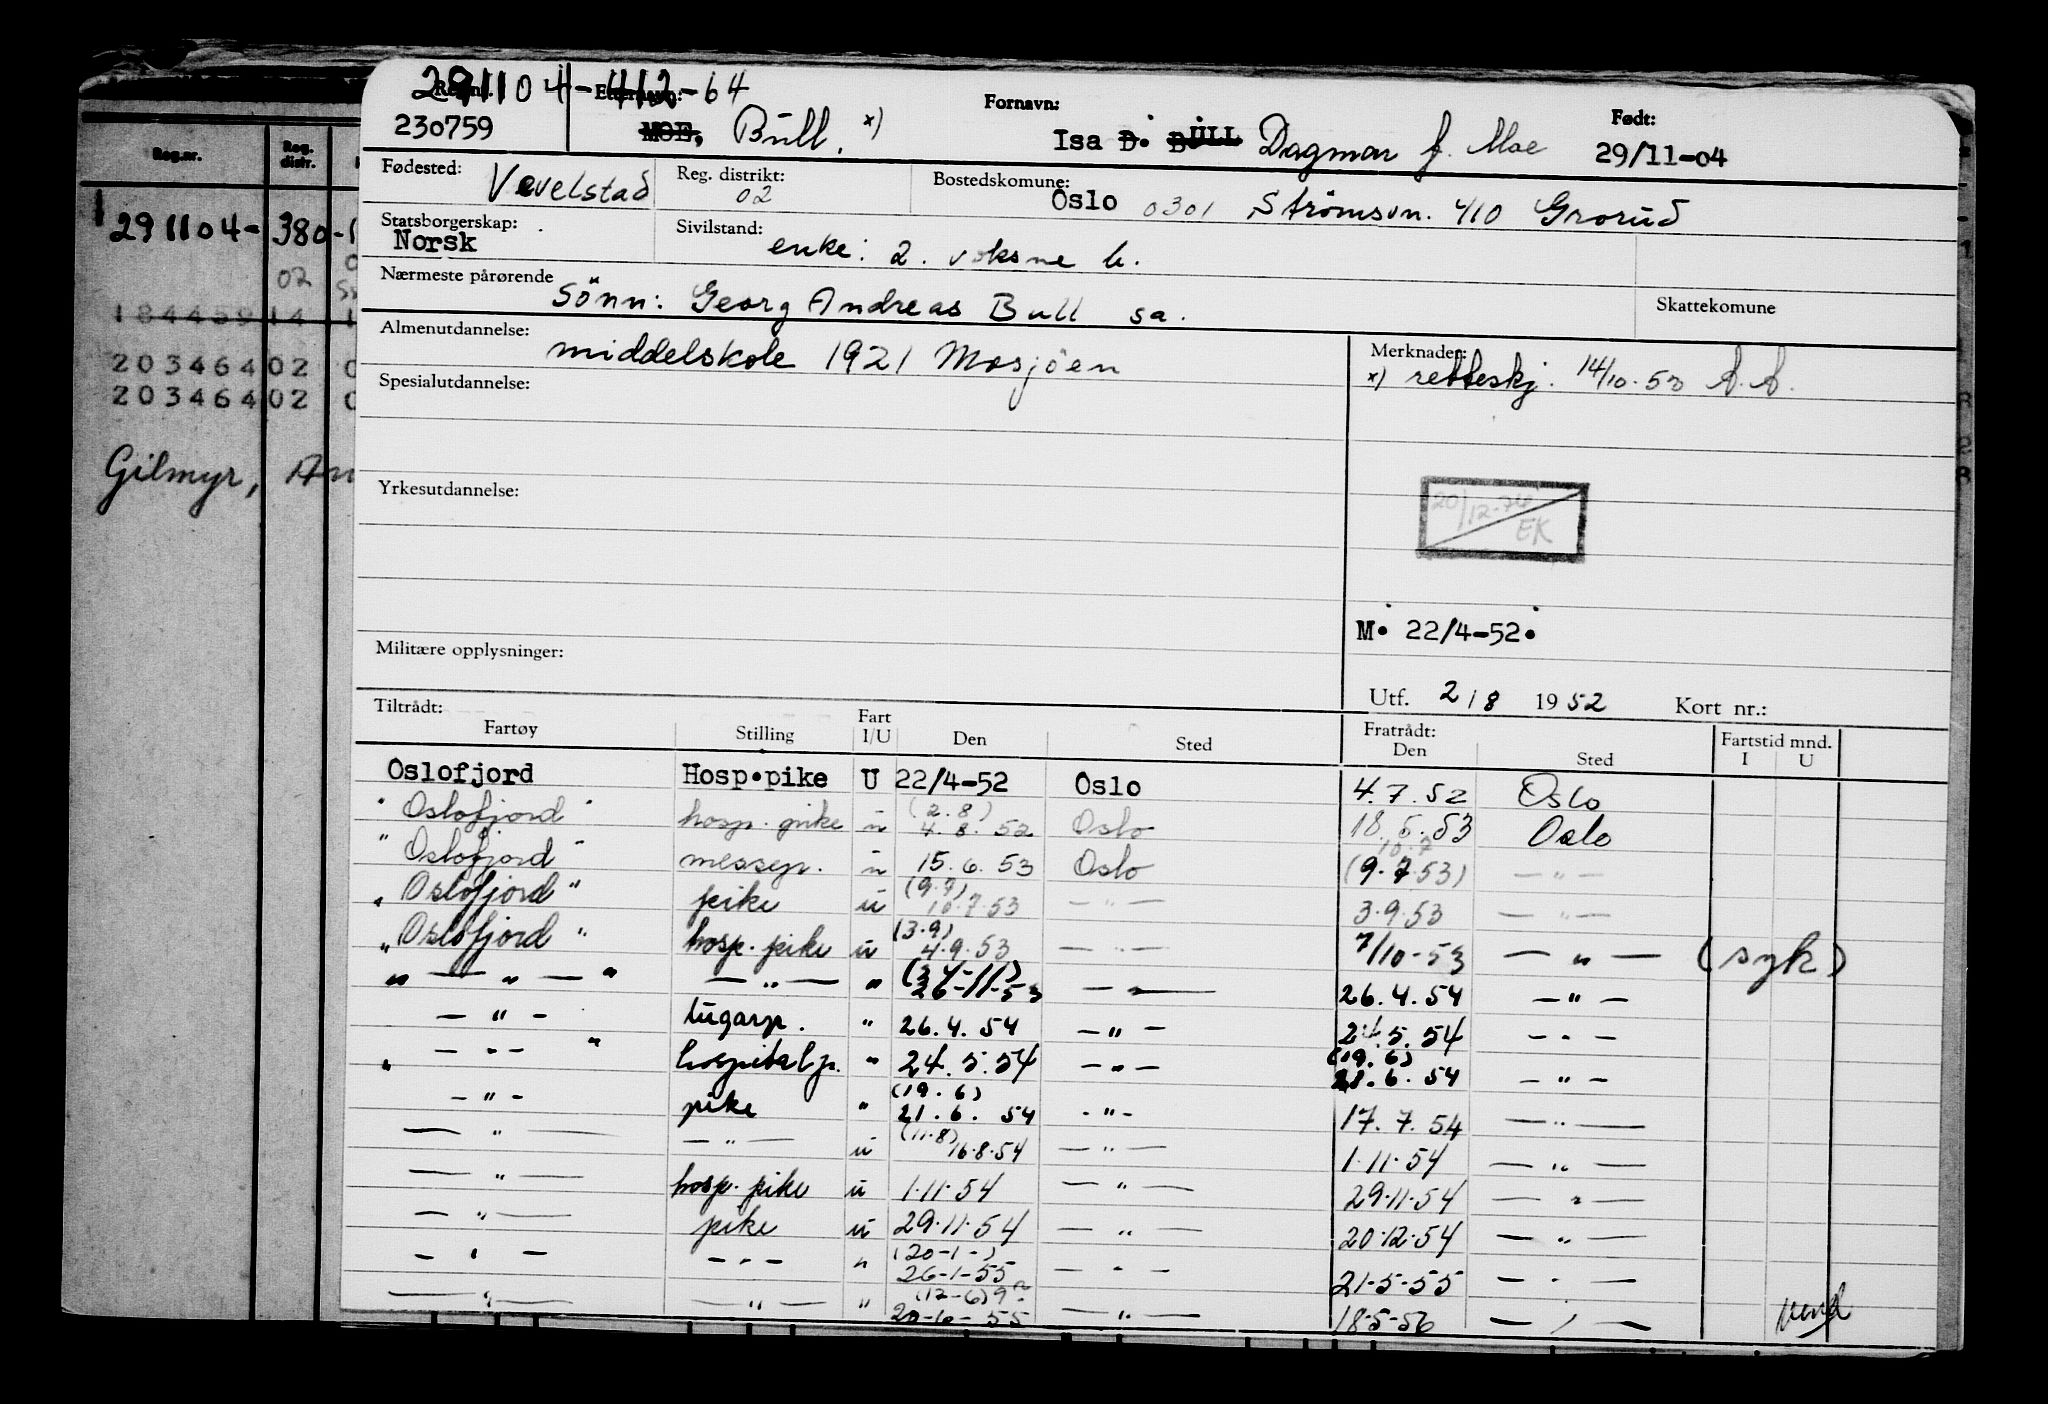 291104-412-64
Reg.nr. Etternavn: Fornavn: Født:
230759 MOE, Bull. x) Isa D. BULL Dagmar f. Moe 29/11-04
Fødested: Vevelstad Reg. distrikt: 02 Bostedskomune: Oslo 0301 Strömsvn. 410 Grorud
Statsborgerskap: Norsk Sivilstand: enke: 2. voksne b.
Nærmeste pårørende Sönn: Georg Andreas Bull sa. Skattekomune
Almenutdannelse: middelskole 1921 Mosjöen Merknader:
x) retteskj. 14/10-53 A.A.
Spesialutdannelse:
Yrkesutdannelse:
20/12-74 EK
M. 22/4-52.
Militære opplysninger:
Utf. 2/8 1952 Kort nr.:
Tiltrådt: Fratrådt: Fartstid mnd.
Fartøy Stilling Fart I/U Den Sted Den Sted I U
Oslofjord Hosp.pike U 22/4-52 Oslo 4.7.52 Oslo
"Oslofjord" hosp. pike u (2.8) 4.8.52 Oslo 18.5.53 Oslo
"Oslofjord" messep. u 15.6.53 Oslo 10.7 (9.7.53) — " —
"Oslofjord" pike u (9.7) 10.7.53 — " — 3.9.53 — " —
"Oslofjord" hosp. pike u (3.9) 4.9.53 — " — 7/10-53 — " — (syk)
" — " — " — " — " (24-11) 26-11-53 — " — 26.4.54 — " —
— " — lugarp. " 26.4.54 — " — 24.5.54 — " —
" — " — " hospitalp. " 24.5.54 — " — (19.6) 21.6.54 — " —
— " — pike " (19.6) 21.6.54 — " — 17.7.54 — " —
— " — — " — u (11.8) 16.8.54 — " — 1.11.54 — " —
— " — hosp. pike u 1.11.54 — " — 29.11.54 — " —
— " — pike u 29.11.54 — " — 20.12.54 — " —
— " — — " — " (20-1-) 26-1-55 — " — 21-5-55 — " —
— " — — " — " (12-6) 20-6-55 — " — 18-5-56 — " —
vend
Reg.nr. Reg. distr.
291104- 380-1
02
184459 14 1
203464 02 0
203464 02 0
Gilmyr, An